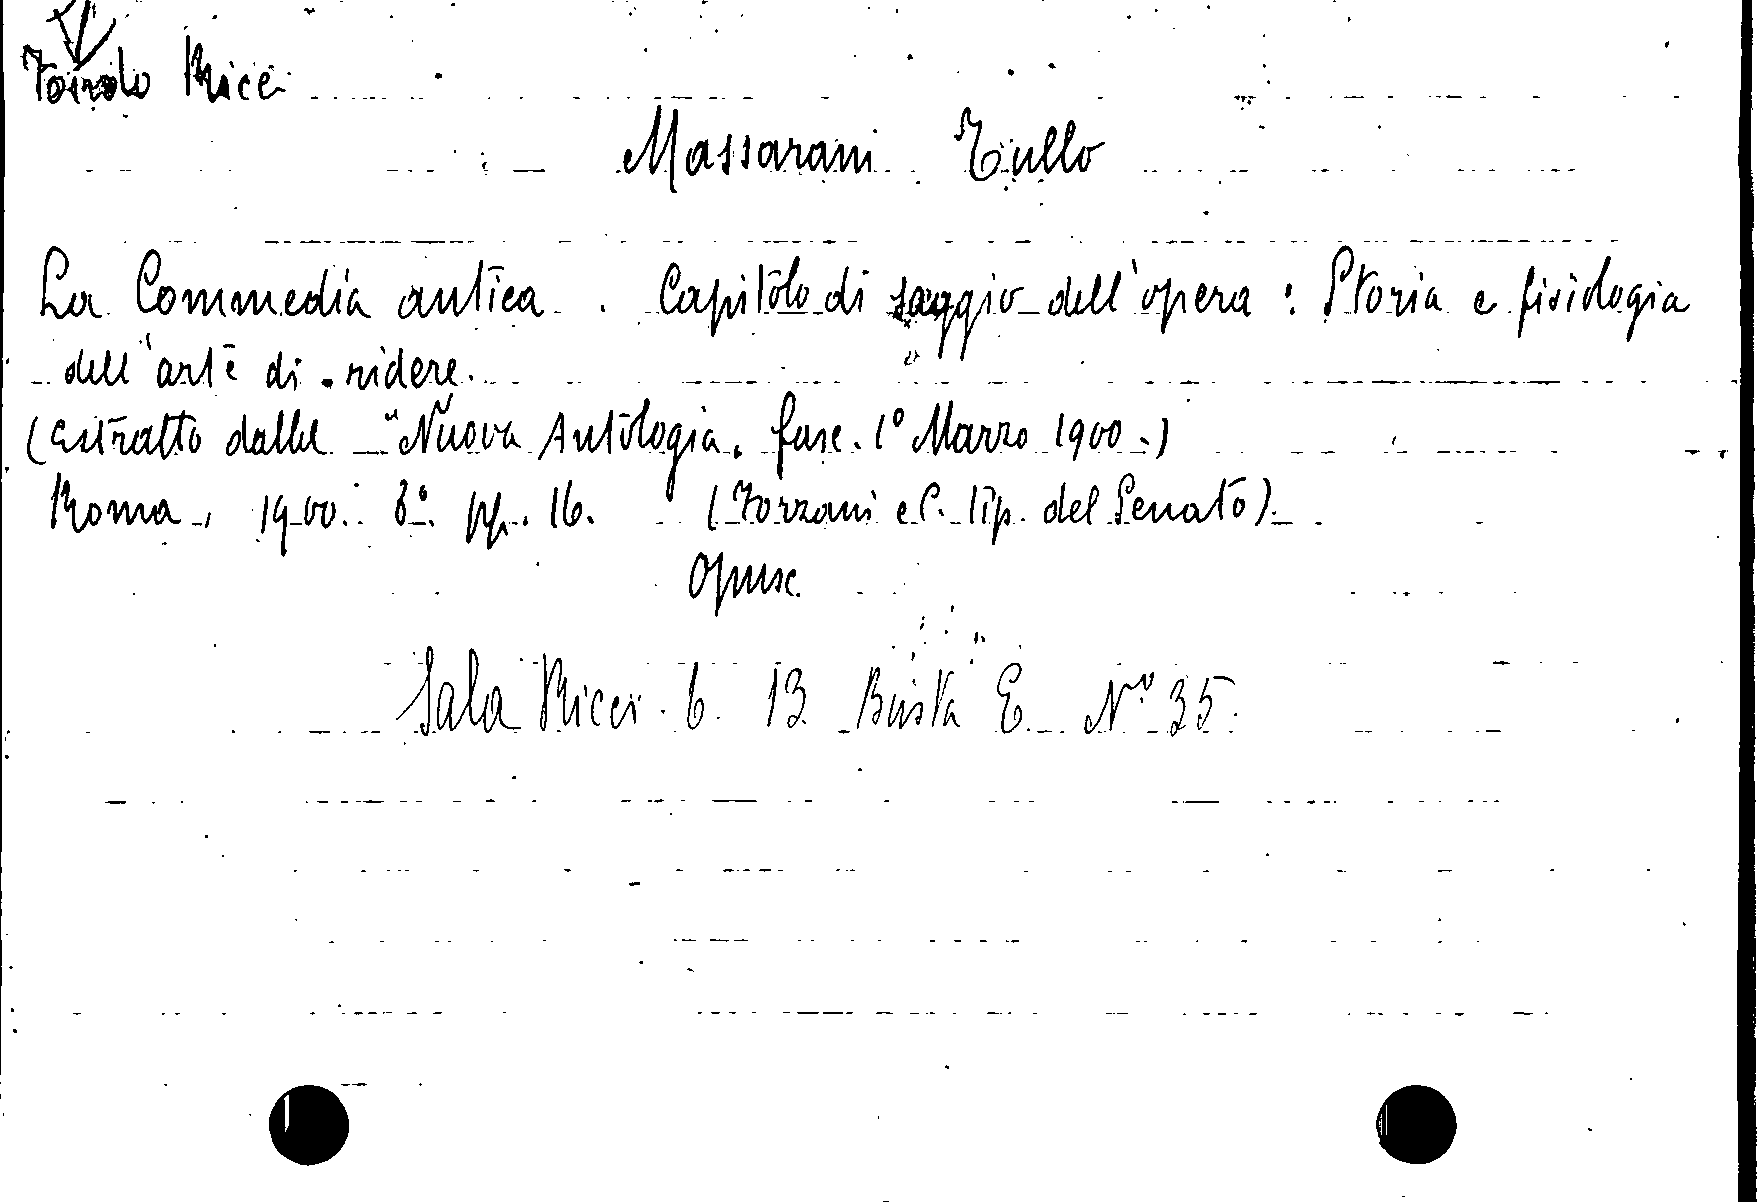 Fondo Ricci
Massarani Tullo
La Commedia antica. Capitolo di saggio dell'opera: Storia e fisiologia
dell'arte di ridere.
(Estratto dalla "Nuova Antologia. fasc. 1° Marzo 1900.)
Roma, 1900. 8°. pp. 16. (Forzani e C. tip. del Senato).
Opusc.
Sala Ricci. 6. 13 Busta E N° 35.